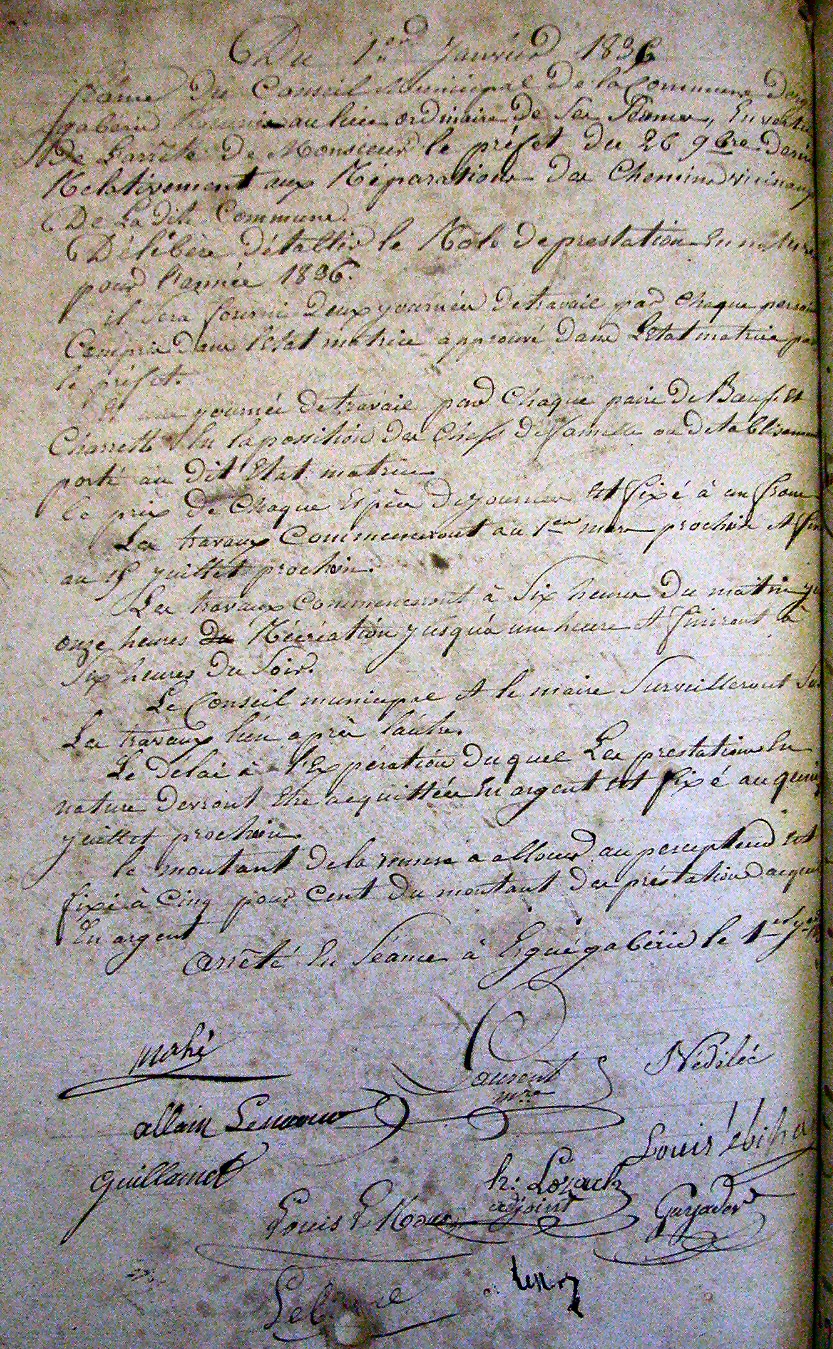 Du 1er Janvier 1836
Séance du Conseil Municipal de la Commune d'er
gabéric Réunie au lieu ordinaire de ses Séances, En vertu
de L'arrêté de Monsieur le préfet du 26 9bre dernier
Relativement aux Réparations des Chemins vicinaux
De La dite Commune.
Délibère d'établir le Role de prestation En nature
pour l'année 1836.
il sera fourni Deux journées de travail par chaque personne
Compris dans l'Etat matrice approuvé dans L'Etat matrice par
le préfet.
Et une journée de travail par Chaque paire de Bœufs et
Charrette En la possition des Chefs de famille ou d'etablissement
porté au dit Etat matrice
le prix de Chaque Espèce de journée Est fixé à un franc
Les travaux Commenceront au 1er mars prochain Et fin
au 15 juillet prochain.
Les travaux commenceront à Six heures du matin ju
onze heures Du Récréation jusqu'à une heure Et finiront à
Six heures du Soir.
Le Conseil municipal Et le maire Surveilleront Sur
Les travaux l'un après l'autre.
Le délai à l'Expération duquel Les prestations En
nature devront Etre acquittées En argent Est fixé au quinze
juillet prochain
le montant de la remise a allouer au percepteur Est
fixé à Cinq pour Cent du montant des préstations acquit
En argent
arrêté En Séance à Ergué gabéric le 1er
Mahé
Laurent
Nédélèc
mre
allain Lenaour
Guillamet
Louis
h: Lozach
adjoint
Louis
Guyader